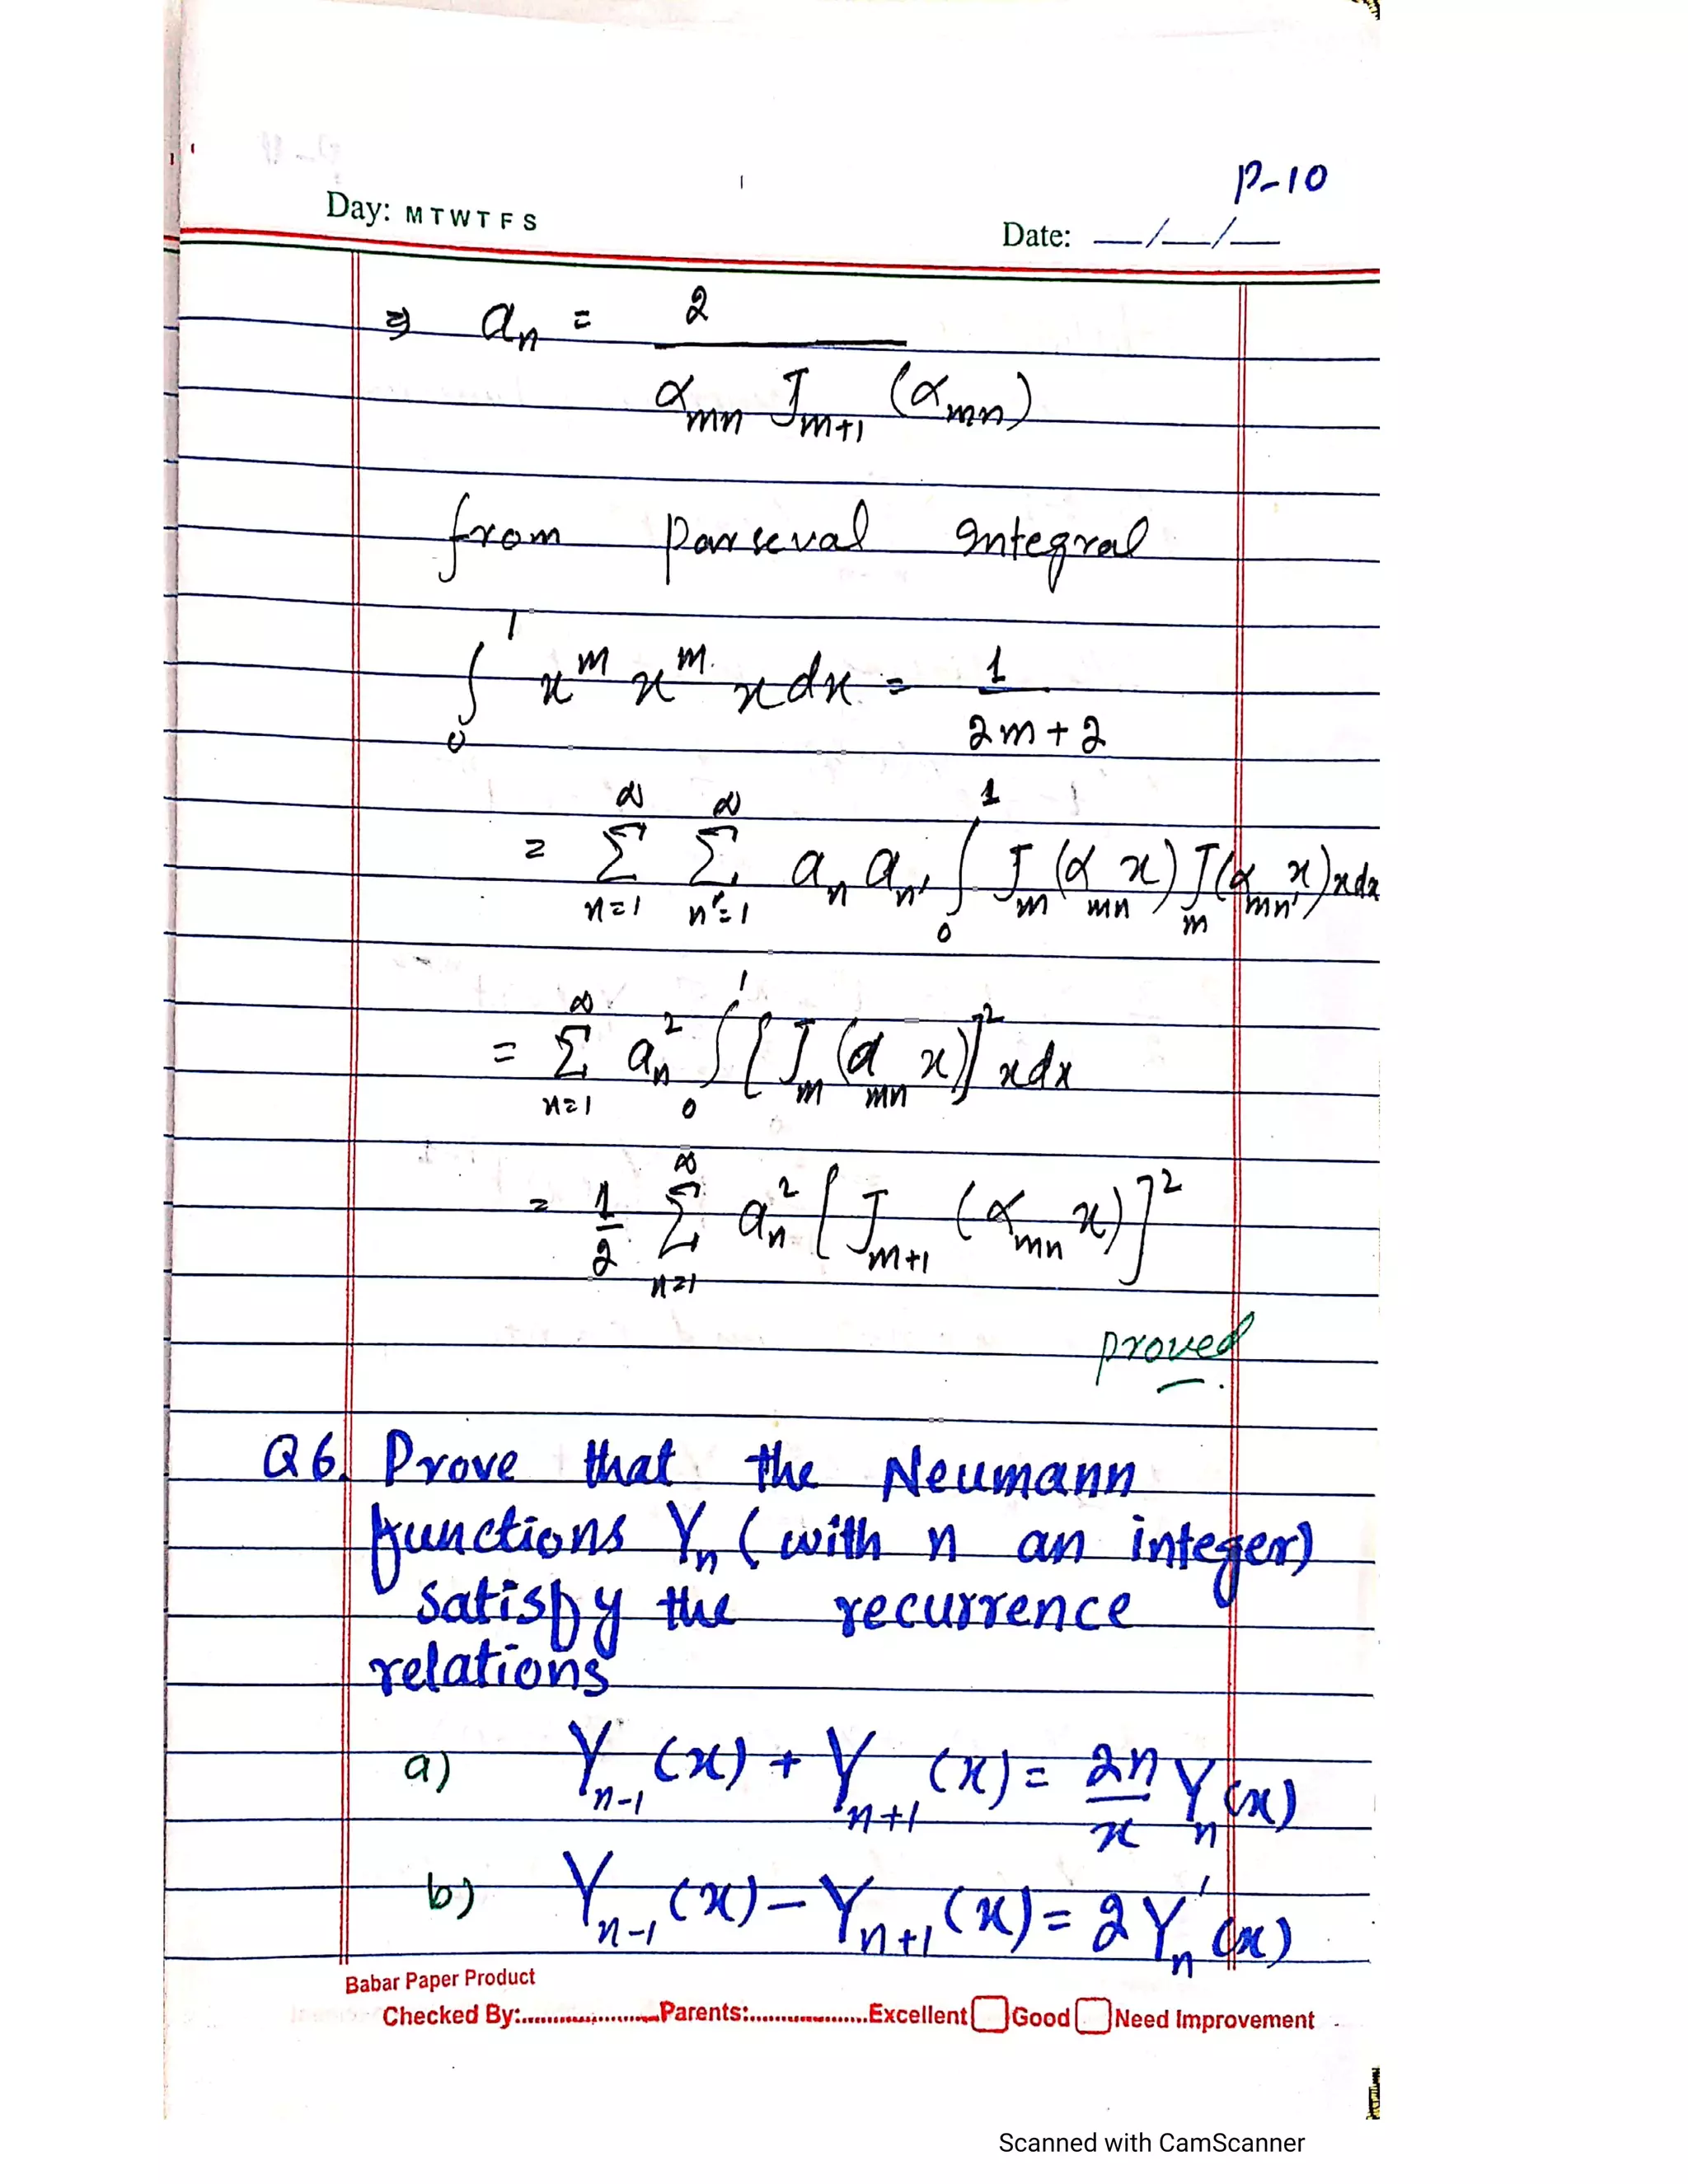 P-10
Day: M T W T F S
Date: __/__/__
⇒ aₙ = 2 / (α_mn J_m+1 (α_mn))
from Parseval Integral
∫₀¹ x^m x^m x dx = 1 / (2m + 2)
= Σ_{n=1}^∞ Σ_{n'=1}^∞ a_n a_n' ∫₀¹ J_m (α_mn x) J_m (α_mn' x) x dx
= Σ_{n=1}^∞ a_n² ∫₀¹ [J_m (α_mn x)]² x dx
= 1/2 Σ_{n=1}^∞ a_n² [J_m+1 (α_mn x)]²
proved.
Q6. Prove that the Neumann
functions Yₙ (with n an integer)
satisfy the recurrence
relations
a) Y_n-1 (x) + Y_n+1 (x) = 2n/x Y_n (x)
b) Y_n-1 (x) − Y_n+1 (x) = 2 Y_n' (x)
Babar Paper Product
Checked By:......................Parents:......................Excellent Good Need Improvement
Scanned with CamScanner